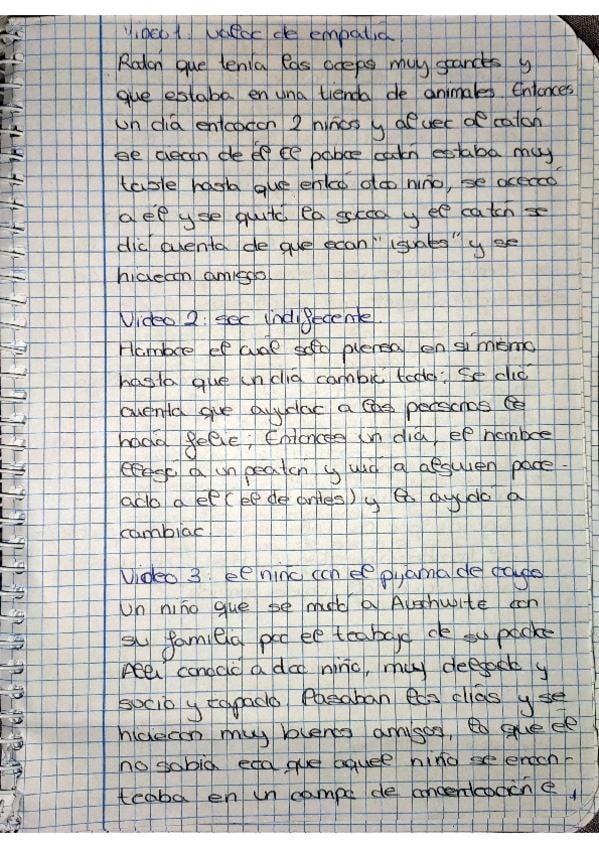 Video 1: valor de empatía.
Ratón que tenía las orejas muy grandes y
que estaba en una tienda de animales. Entonces
un día entraron 2 niños y al ver al ratón
se rieron de él. El pobre ratón estaba muy
triste hasta que entró otro niño, se acercó
a él y se quitó la gorra y el ratón se
dió cuenta de que eran "iguales" y se
hicieron amigos.
Video 2: ser indiferente.
Hombre el cual solo piensa en sí mismo
hasta que un día cambió todo; Se dió
cuenta que ayudar a las personas le
hacía feliz; Entonces un día, el hombre
llegó a un peatón y vió a alguien pare-
cido a el (el de antes) y lo ayudó a
cambiar.
Video 3: el niño con el pijama de rayas
Un niño que se mudó a Auschwitz con
su familia por el trabajo de su padre
Allí conoció a otro niño, muy delgado y
sucio y rapado. Pasaban los días y se
hicieron muy buenos amigos, lo que él
no sabía era que aquel niño se encon-
traba en un campo de concentración e,